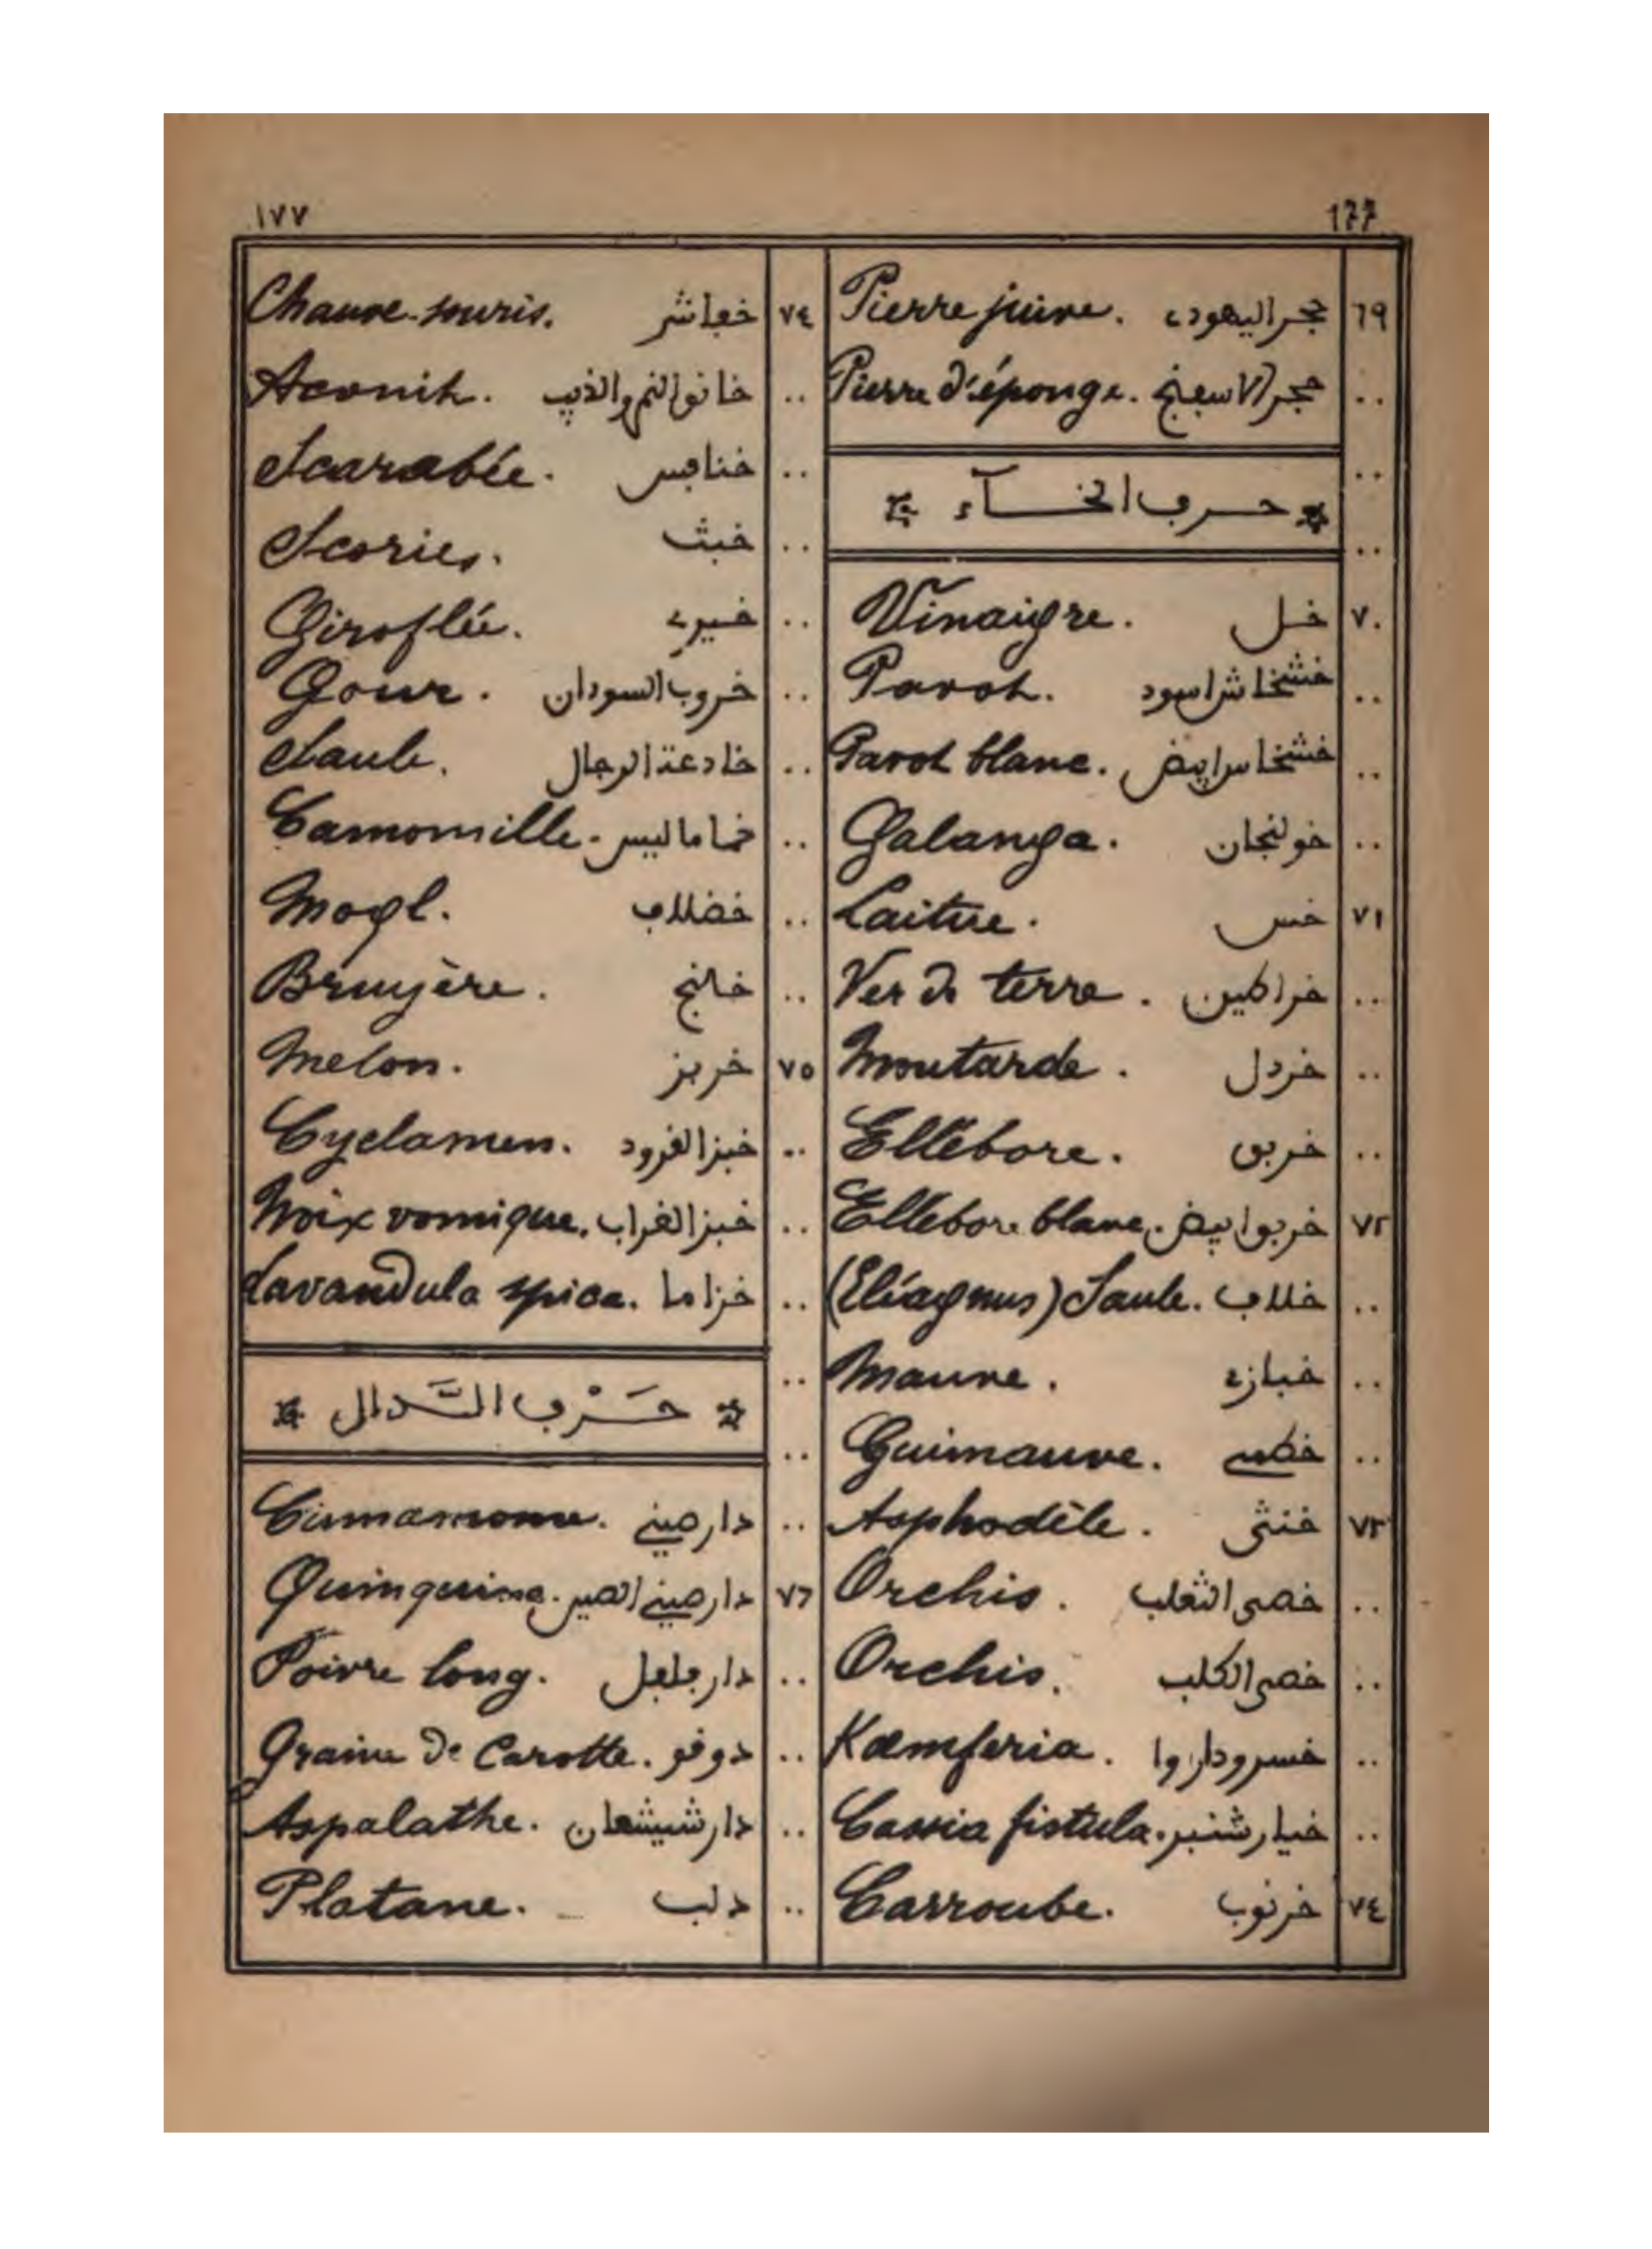 ١٧٧ 177
٦٩ حجر اليهودي Pierre juive.
.. حجر الاسفنج Pierre d'éponge.
..
* حرف الخآء *
..
٧٠ خل Vinaigre.
.. خشخاش اسود Pavot.
.. خشخاس ابيض Pavot blanc.
.. خولنجان Galanga.
٧١ خس Laitue.
.. خراطين Ver de terre.
.. خردل Moutarde.
.. خربق Ellébore.
٧٢ خربق ابيض Ellébore blanc.
.. خلاف (Eléagnus) Saule.
.. خبازي Mauve.
.. خطمي Guimauve.
٧٣ خنثى Asphodèle.
.. خصى الثعلب Orchis.
.. خصى الكلب Orchis.
.. خسرودار وا Kæmferia.
.. خيار شنبر Cassia fistula.
٧٤ خرنوب Carroube.
٧٤ خفاشر Chauve-souris.
.. خانق النمر والذيب Aconit.
.. خنافس Scarabée.
.. خبث Scories.
.. خيري Giroflée.
.. خروب السودان Gour.
.. خادعة الرجال Saule.
.. خاماليس Camomille.
.. خضلاف Mogl.
.. خالنج Bruyère.
٧٥ خربز Melon.
.. خبز القرود Cyclamen.
.. خبز الغراب Noix vomique.
.. خزاما Lavandula spica.
..
* حَرْف الدَّال *
..
.. دار صيني Cinnamome.
٧٦ دار صيني الصين Quinquina.
.. دار فلفل Poivre long.
.. دوقو Graine de Carotte.
.. دار شيشعان Aspalathe.
.. دلب Platane.